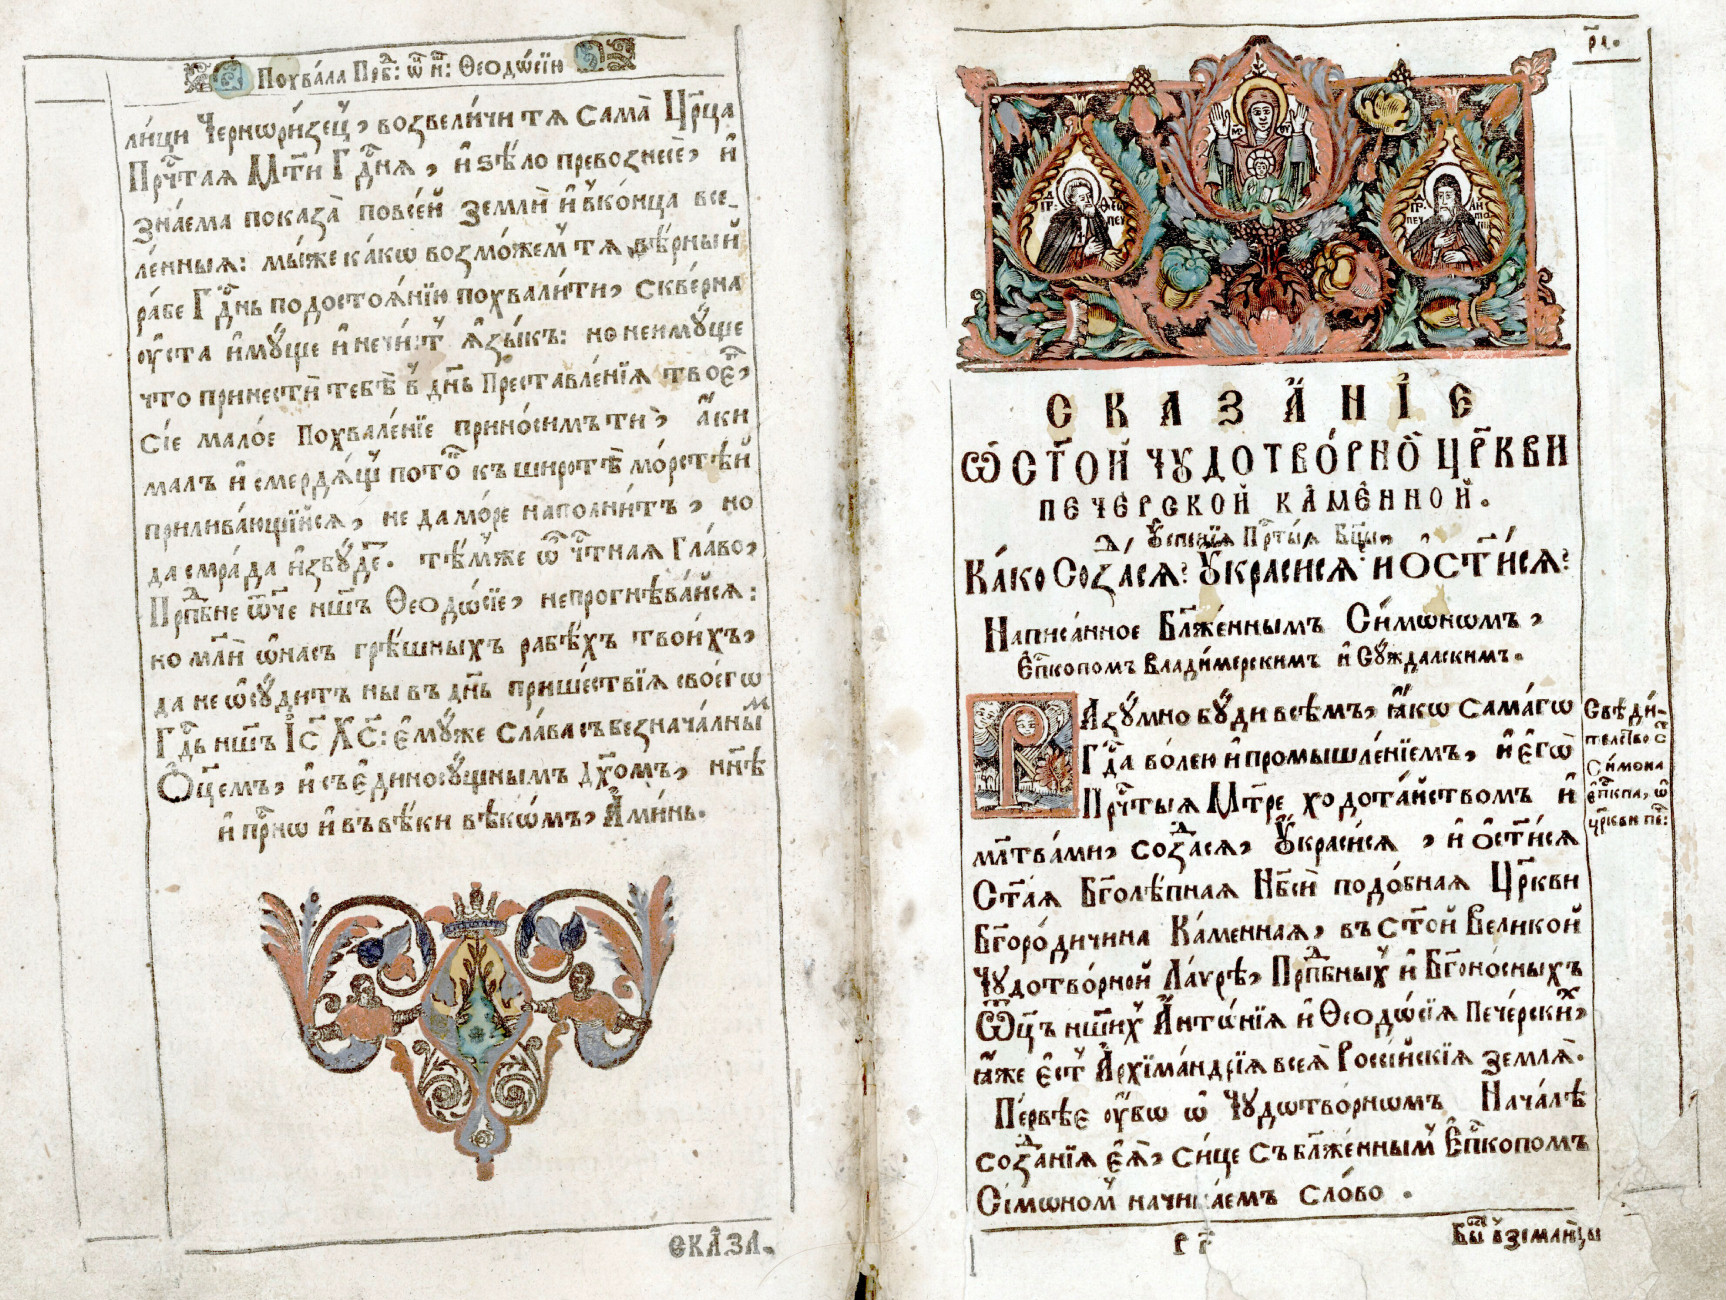 Похвала Прⷣб: ѿ н҃: Ѳеодѡ́сїю
ли́ци Чернори́зєц̾, возвели́чи тѧ сама̀ Цр҃ца
Прⷱ҇таѧ Мт҃и Гⷭ҇днѧ, и҆ ѕѣ́ло превознесѐ, и҆
зна́ема показа̀ повсе́й землѝ и҆ в̾ко́нца все-
ле́нныѧ: мы́же ка́кѡ возмо́жем̾ тѧ вѣ́рный
ра́бе Гⷭ҇днь по достоѧ́нїю похвали́ти, скве́рна
ᲂу҆ста̀ и҆му́ще и҆ нечи́ст ѧ҆зы́къ: но неиму́ще
что принестѝ тебѣ̀ в̾ дн҃ь Преставле́нїѧ твоегѡ̀,
сїѐ ма́лое Похвале́нїе прино́симъ тѝ, а҆́ки
малъ и҆ смердѧ́щ пото́к къ широтѣ̀ мо́рстѣй
прилива́ющїйсѧ, не да мо́ре напо́лнитъ, но
да смра́да и҆збу́дет. тѣ́мже ѽ чⷭ҇тнаѧ Гла́во,
Прпⷣбне ѿ҃че нш҃ъ Ѳеодѡ́сїе, непрогнѣ́вайсѧ:
но млѝ ѡ҆ на́съ грѣ́шныхъ рабѣ́хъ твои́хъ,
да не ѡ҆су́дитъ ны въ дн҃ь прише́ствїѧ своегѡ̀
Гⷭ҇дь нш҃ъ Іс҃ Хс҃: є҆му́же сла́ва съ безнача́лным
Ѻ҆ц҃емъ, и҆ съ є҆диносу́щнымъ дх҃омъ, нн҃ѣ
и҆ прⷭ҇нѡ и҆ въ вѣ́ки вѣкѡ́мъ, А҆ми́нь.
СКА́ЗА.
р҃а.
СКАЗА́НІЕ
Ѡ҆ СТ҃ОЙ ЧУДОТВО́РНОЙ ЦР҃КВИ
ПЕЧЕ́РСКОЙ КА́МЕННОЙ.
Ѹ҆спе́нїѧ Прⷱ҇тыѧ Бц҃ы,
Ка́ко Созⷣасѧ: Ѹ҆краси́сѧ: и҆ Ѻ҆ст҃и́сѧ:
Написа́нное Бл҃же́ннымъ Си́мѡномъ,
Є҆пⷭ҇копомъ Влади́мерскимъ и҆ Су́ждалскимъ.
РАзу́мно бу́ди всѣ́мъ, ꙗ҆́кѡ самагѡ
Гⷭ҇да во́лею и҆ промышле́нїемъ, и҆ є҆гѡ̀
Прⷱ҇тыѧ Мт҃ре хода́тайствомъ и҆
мл҃тва́ми, созⷣасѧ, Ѹ҆краси́сѧ, и҆ ѻ҆ст҃и́сѧ
Ст҃а́ѧ Бг҃олѣ́пнаѧ Нб҃сѝ подо́бнаѧ Цр҃кви
Бг҃оро́дичина Ка́меннаѧ, въ ст҃ой Вели́кой
Чудотво́рной Ла́врѣ, Прпⷣбныⷯ и҆ Бг҃оно́сныхъ
Ѿц҃ъ нши҃ⷯ А҆нтѡ́нїѧ и҆ Ѳеодѡ́сїѧ Пече́рскиⷯ,
ꙗ҆́же є҆́ст̾ А҆рхїма́ндрїѧ всеѧ̀ Росси́йскїѧ землѧ̀.
Пе́рвѣе ᲂу҆́бѡ ѡ҆ Чудотво́рнѡмъ Нача́лѣ
созⷣа́нїѧ є҆ѧ̀, си́це съ бл҃же́нным̾ Є҆пⷭ҇копомъ
Сі́мѡном̾ начина́емъ сло́во.
Свѣди́-
телство С
Си́мона
є҆пⷭ҇кпа, ѡ҆
цр҃кви пе:
Бы́сть в̾земли